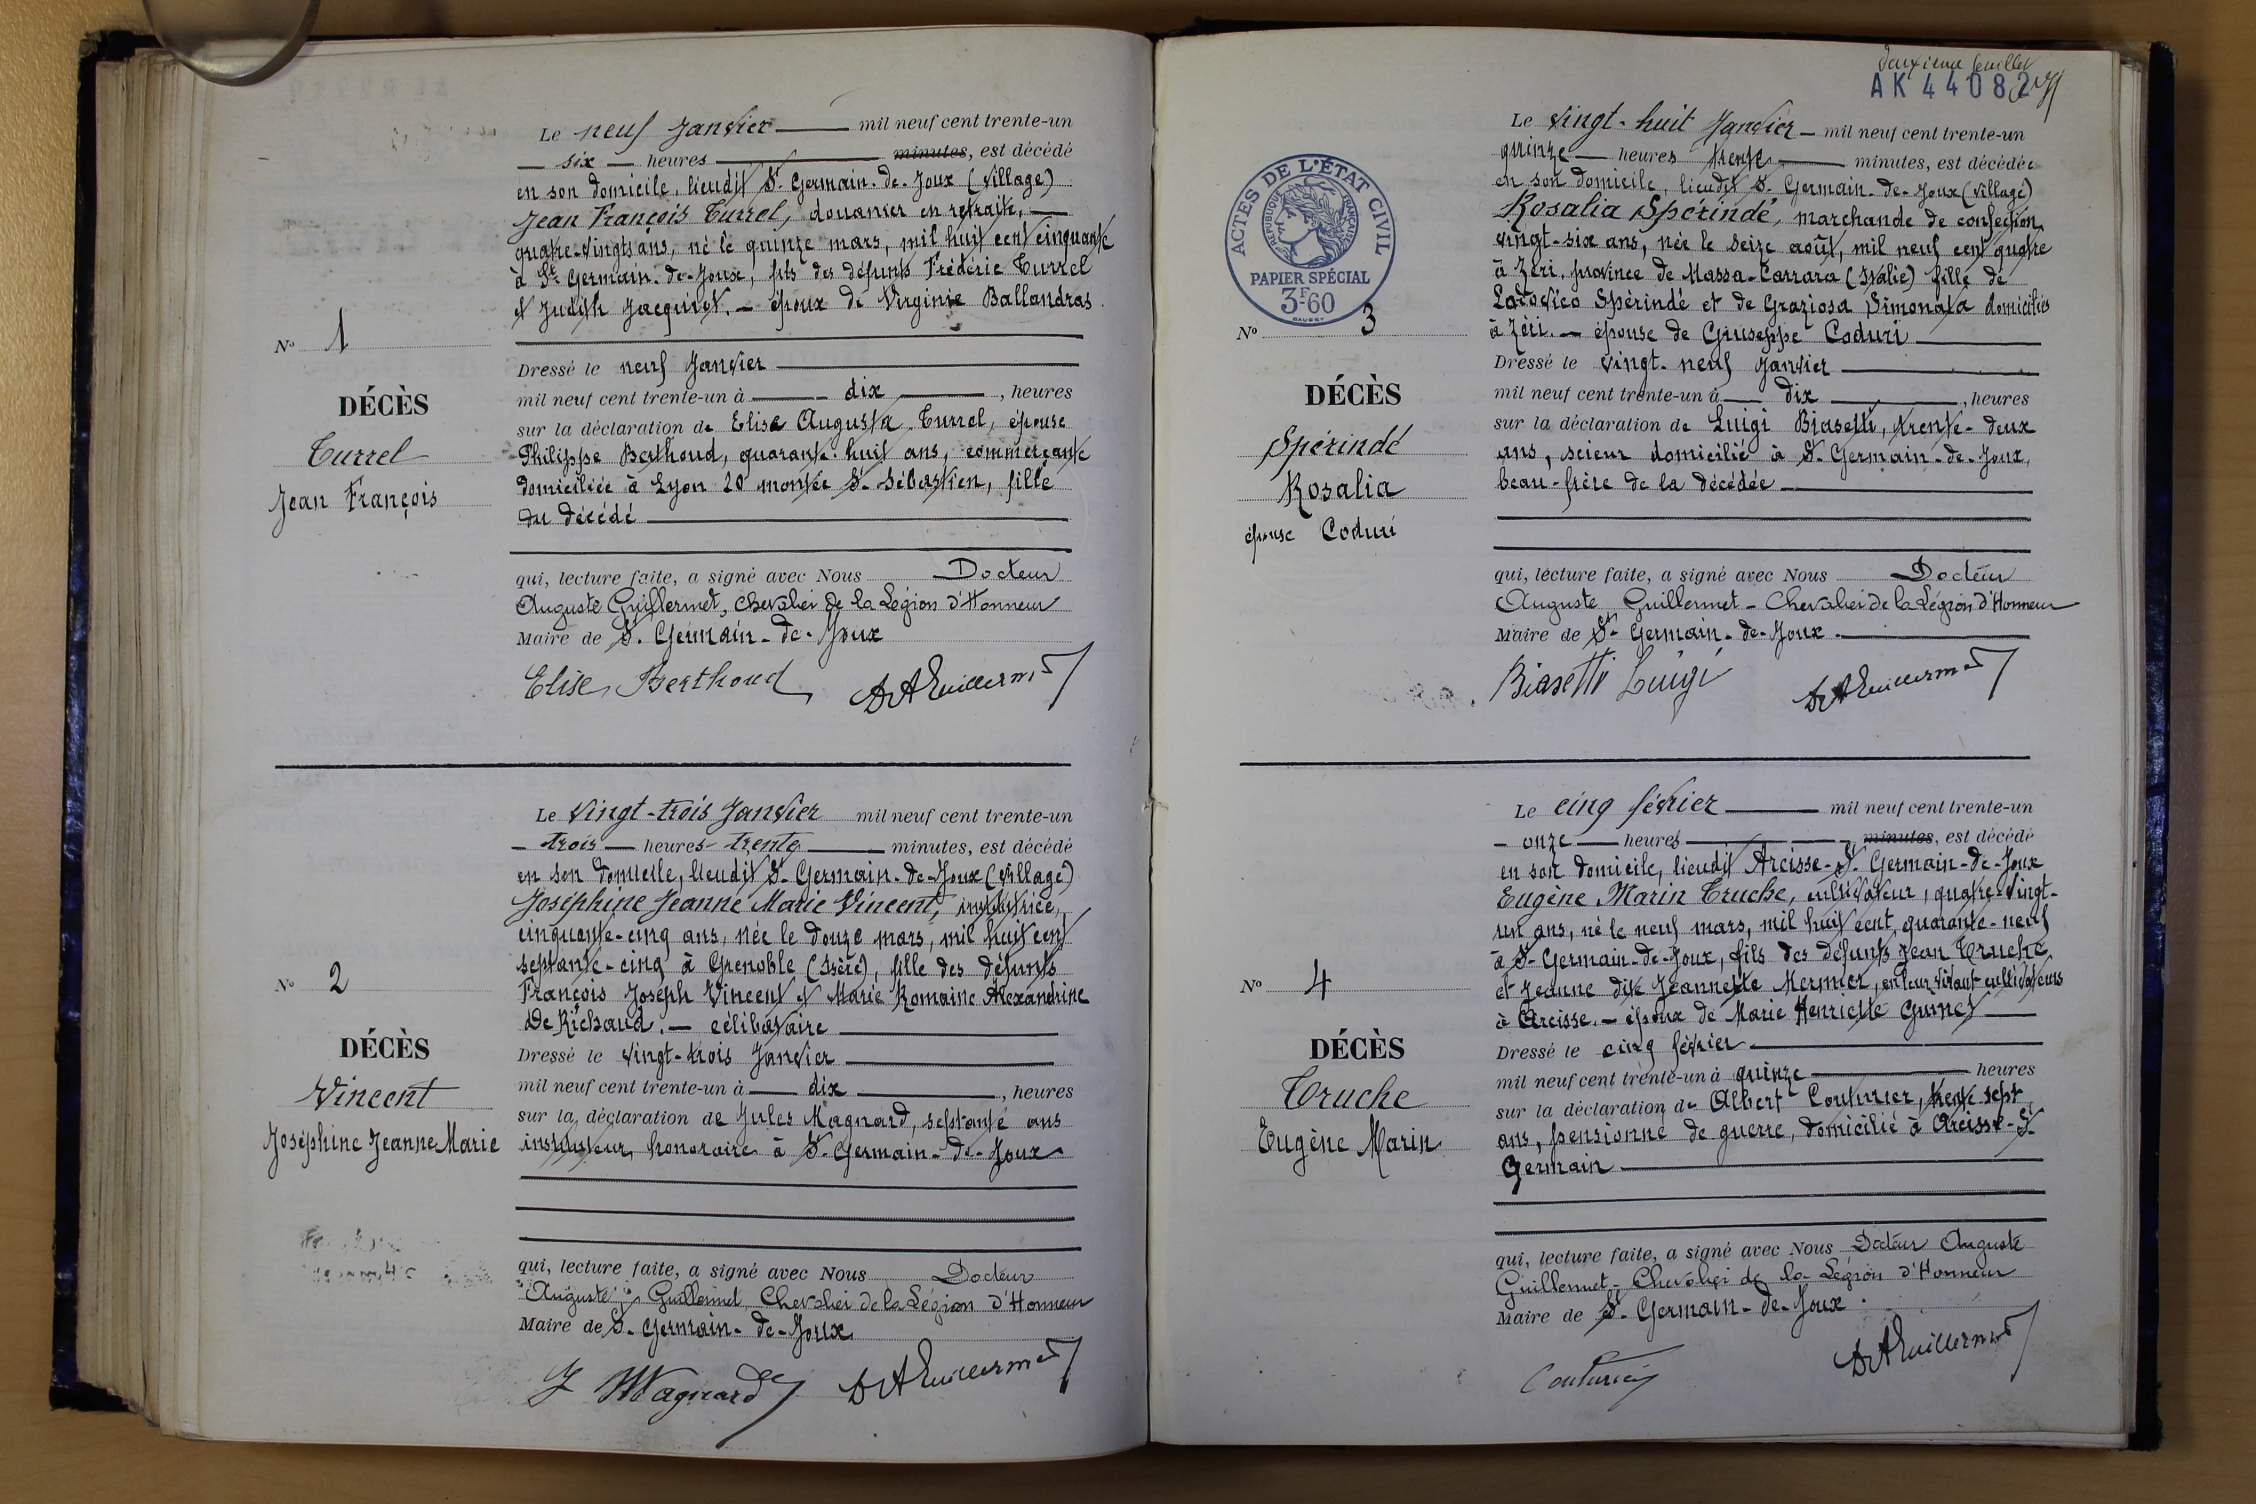 Le neuf Janvier mil neuf cent trente-un
six heures minutes, est décédé
en son domicile, lieudit St Germain-de-Joux (village)
Jean François Turrel, douanier en retraite,
quatre-vingts ans, né le quinze mars, mil huit cent cinquante
à St Germain-de-Joux, fils des défunts Frédéric Turrel
et Judith Jacquinot. — époux de Virginie Ballandras.
N° 1
DÉCÈS
Turrel
Jean François
Dressé le neuf Janvier
mil neuf cent trente-un à dix, heures
sur la déclaration de Elise Augusta Turrel, épouse
Philippe Berthoud, quarante-huit ans, commerçante
domiciliée à Lyon 20 montée St Sébastien, fille
du décédé
qui, lecture faite, a signé avec Nous Docteur
Auguste Guillermet, Chevalier de la Légion d'Honneur
Maire de St. Germain-de-Joux
Elise Berthoud Dr A Guillermet
Le vingt-trois Janvier mil neuf cent trente-un
trois heures trente minutes, est décédé
en son domicile, lieudit St Germain-de-Joux (village)
Joséphine Jeanne Marie Vincent, institutrice,
cinquante-cinq ans, née le douze mars, mil huit cent
septante-cinq à Grenoble (Isère), fille des défunts
François Joseph Vincent et Marie Romaine Alexandrine
De Richaud. — célibataire
N° 2
DÉCÈS
Vincent
Joséphine Jeanne Marie
Dressé le vingt-trois Janvier
mil neuf cent trente-un à dix, heures
sur la déclaration de Jules Magnard, septante ans
instituteur honoraire à St Germain-de-Joux
qui, lecture faite, a signé avec Nous Docteur
Auguste Guillermet Chevalier de la Légion d'Honneur
Maire de St. Germain-de-Joux
J Magnard Dr A Guillermet
deuxième feuillet
AK 44082
ACTES DE L'ÉTAT CIVIL
RÉPUBLIQUE FRANÇAISE
PAPIER SPÉCIAL
3F60
Le vingt-huit Janvier mil neuf cent trente-un
quinze heures trente minutes, est décédée
en son domicile, lieudit St Germain-de-Joux (village)
Rosalia Spérindé, marchande de confection,
vingt-six ans, née le seize août, mil neuf cent quatre
à Zéri, province de Massa-Carrara (Italie) fille de
Lodovico Spérindé et de Graziosa Simonata domiciliés
à Zéri. — épouse de Giuseppe Coduri
N° 3
DÉCÈS
Spérindé
Rosalia
épouse Coduri
Dressé le vingt-neuf Janvier
mil neuf cent trente-un à dix, heures
sur la déclaration de Luigi Biasetti, trente-deux
ans, scieur domicilié à St Germain-de-Joux,
beau-frère de la décédée
qui, lecture faite, a signé avec Nous Docteur
Auguste Guillermet - Chevalier de la Légion d'Honneur
Maire de St Germain-de-Joux.
Biasetti Luigi Dr A Guillermet
Le cinq février mil neuf cent trente-un
onze heures minutes, est décédé
en son domicile, lieudit Arcisse-St Germain-de-Joux
Eugène Marin Truche, cultivateur, quatre-vingt-
un ans, né le neuf mars, mil huit cent quarante-neuf
à St Germain-de-Joux, fils des défunts Jean Truche
et Jeanne dite Jeannette Mermier, en leur vivant cultivateurs
à Arcisse. — époux de Marie Henriette Guinet
N° 4
DÉCÈS
Truche
Eugène Marin
Dressé le cinq février
mil neuf cent trente-un à quinze heures
sur la déclaration de Albert Couturier, trente sept
ans, pensionné de guerre, domicilié à Arcisse-St
Germain
qui, lecture faite, a signé avec Nous Docteur Auguste
Guillermet, Chevalier de la Légion d'Honneur
Maire de St Germain-de-Joux.
Couturier Dr A Guillermet